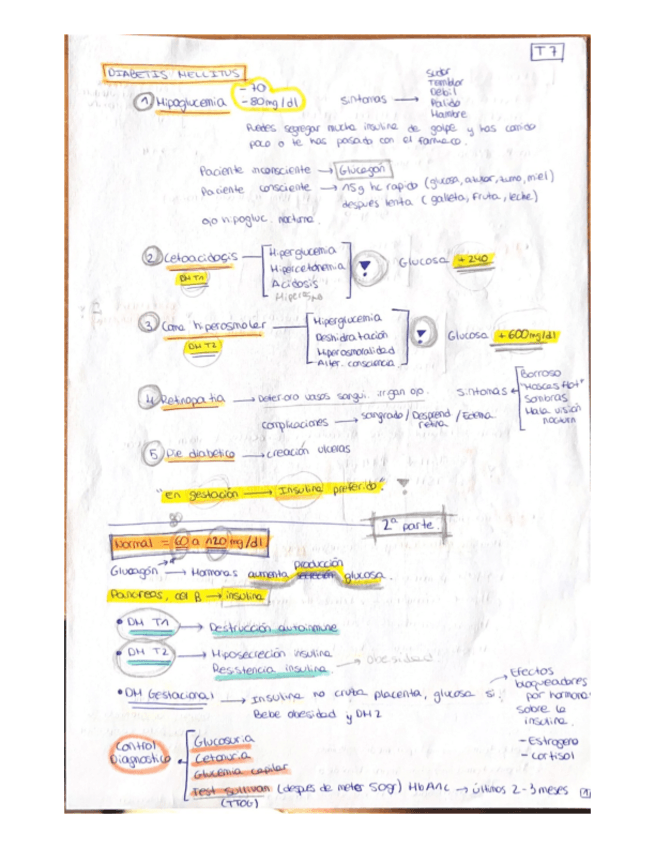 T7
DIABETIS MELLITUS
① Hipoglucemia -70 -80mg/dl
síntomas → Sudor
Temblor
Débil
Pálido
Hambre
Puedes segregar mucha insulina de golpe y has comido
poco o te has pasado con el fármaco.
Paciente inconsciente → Glucagón
Paciente consciente → 15g hc rapido (glucosa, azúcar, zumo, miel)
despues lenta (galleta, fruta, leche)
ojo hipogluc. nocturna.
② Cetoacidosis
DM T1
Hiperglucemia
Hipercetonemia
Acidosis
Glucosa +240
③ Coma hiperosmolar
DM T2
Hiperglucemia
Deshidratación
Hiperosmolaridad
Alter. consciencia
Glucosa +600mg/dl
④ Retinopatia → Deterioro vasos sangui. irrigan ojo.
complicaciones → sangrado / Desprend retina / Edema.
síntomas ← Borroso
"Moscas flot"
Sombras
Mala visión
nocturn
⑤ Pie diabético → creación ulceras
"en gestación → Insulina preferido" !
2ª parte.
80
Normal = 60 a 120 mg/dl
Glucagón → Hormonas aumenta producción glucosa.
Pancreas, cel B → insulina
• DM T1 → Destrucción autoinmune
• DM T2 → Hiposecreción insulina
Resistencia insulina → obesidad
• DM Gestacional → Insulina no cruza placenta, glucosa si.
Bebe obesidad y DM2
→ Efectos
bloqueadores
por hormona
sobre la
insulina.
- Estrogeno
- cortisol
Control
Diagnostico
Glucosuria
Cetonuria
Glucemia capilar
Test Sullivan (despues de meter 50gr) HbA1c → últimos 2-3 meses
(TTOG)